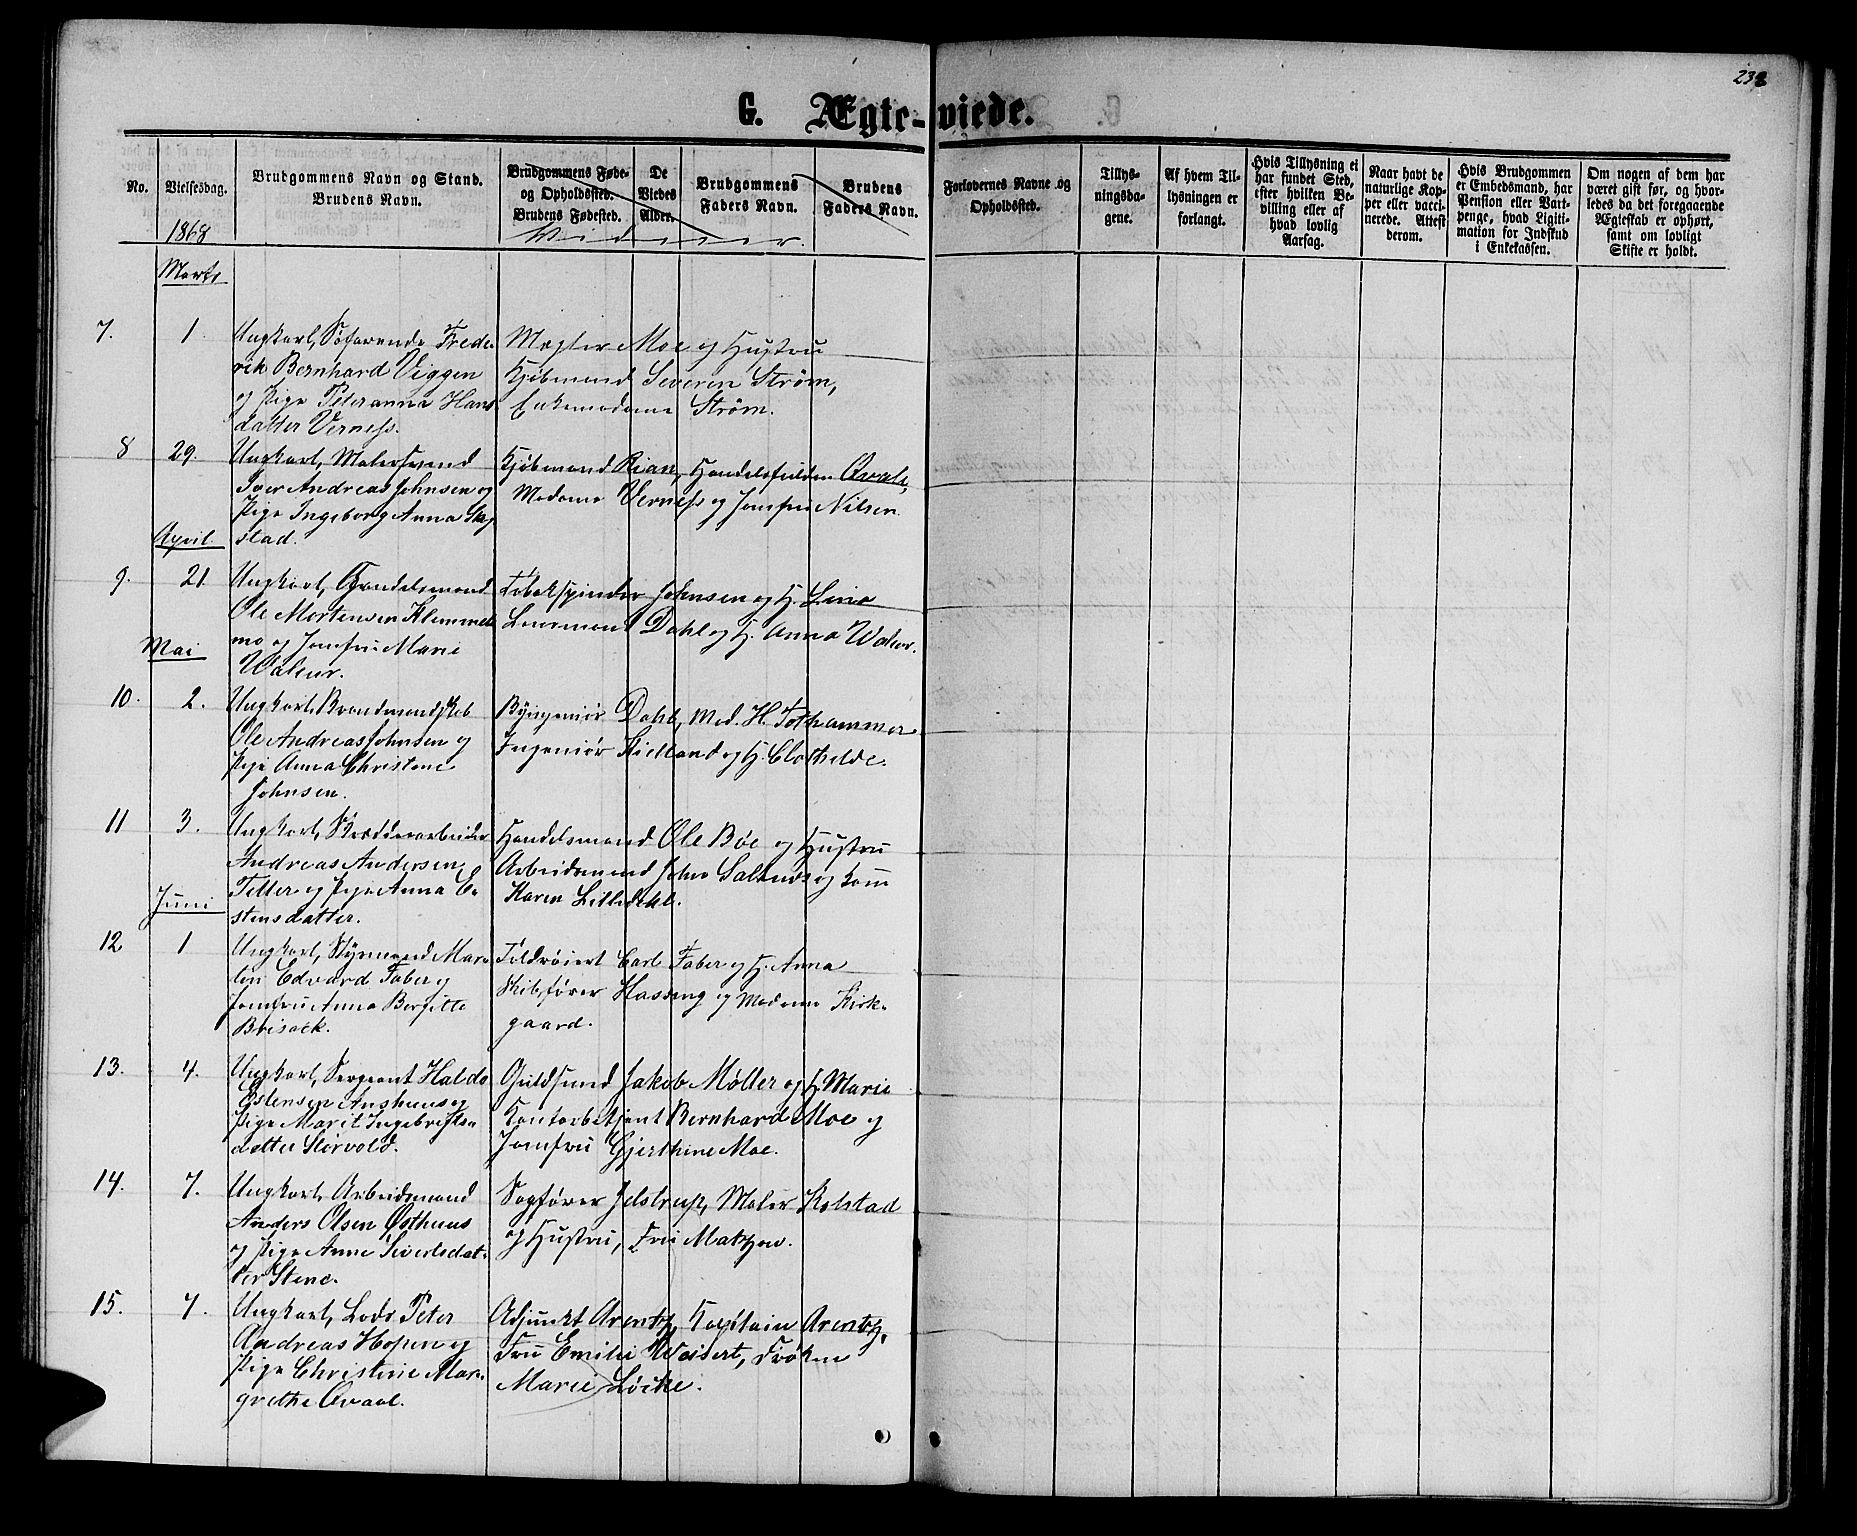 238
G. Ægte-viede.
No.
Vielsesdag.
Brudgommens Navn og Stand.
Brudens Navn.
Brudgommens Føde-
og Opholdssted.
Brudens Fødested.
De
Viedes
Alder.
Brudgommens
Faders Navn.
Brudens
Faders Navn.
Vidner.
Forlovernes Navne og
Opholdssted.
Tillys-
ningsda-
gene.
Af hvem Til-
lysningen er
forlangt.
Hvis Tillysning ei
har fundet Sted,
efter hvilken Be-
villing eller af
hvad lovlig
Aarsag.
Naar havt de
naturlige Kop-
per eller vacci-
nerede. Attest
derom.
Hvis Brudgommen
er Embedsmand, har
Pension eller Vart-
penge, hvad Ligiti-
mation for Indskud
i Enkekassen.
Om nogen af dem har
været gift før, og hvor-
ledes da det foregaaende
Ægteskab er ophørt,
samt om lovligt
Skifte er holdt.
1868
Marts
7. 1. Ungkarl, Søfarende Frede-
rik Bernhard Viggen
og Pige Peteranna Hans
datter Verness.
Mægler Moe og Hustru
Kjøbmand Severen Strøm,
Enkemadame Strøm.
8 29. Ungkarl, Malersvend
Iver Andreas Johnsen og
Pige Ingeborg Anna
stad.
Kjøbmand Rian, Handelsfuldm.
Madame Verness og Jomfru Nilsen
April
9. 21 Ungkarl, Handelsmand
Ole Mortensen Klemmet
mo og Jomfru Marie
Waleur.
Tobakspinder Johnsen og H. Lina
Dahl og H. Anna Waleur.
Mai
10. 2. Ungkarl, Brandmandskab
Ole Andreas Johnsen og
Pige Anna Christene
Johnsen.
Byingeniør Dahl, Mad. H. Tothammer
Ingeniør Kielland og H. Clothilde.
11 3. Ungkarl, Skrædderarbeider
Andreas Andersen
Teller og Pige Anna E-
stensdatter.
Handelsmand Ole Bøe og Hustru
Arbeidsmand John og Kone
Karen Lilledahl.
Juni
12 1 Ungkarl, Styrmand Mar-
tin Edvard Faber og
Jomfru Anna Bergitte
Brisack.
Toldrøiert Carl Faber og H. Anna
Skibsfører Hassing og Madame Kirk-
gaard.
13. 4. Ungkarl, Sergeant Haldo
Estensen Aushuus og
Pige Marit Ingebrigts-
datter Størvold.
Guldsmed Jakob Møller og H. Marie
Kontorbetjent Bernhard Moe og
Jomfru Gjerthine Moe.
14. 7. Ungkarl, Arbeidsmand
Anders Olsen Østhuus
og Pige Anne Sivertsdat-
ter Stene.
Sagfører Jelstrup, Maler Kolstad
og Hustru, Fru Matzow.
15. 7. Ungkarl, Lods Peter
Andreas Hopen og
Pige Christine Mar-
grethe Qvaal.
Adjunkt Arentz, Kapitain Arentz,
Fru Emilie Weisert, Frøken
Marie Løcke.